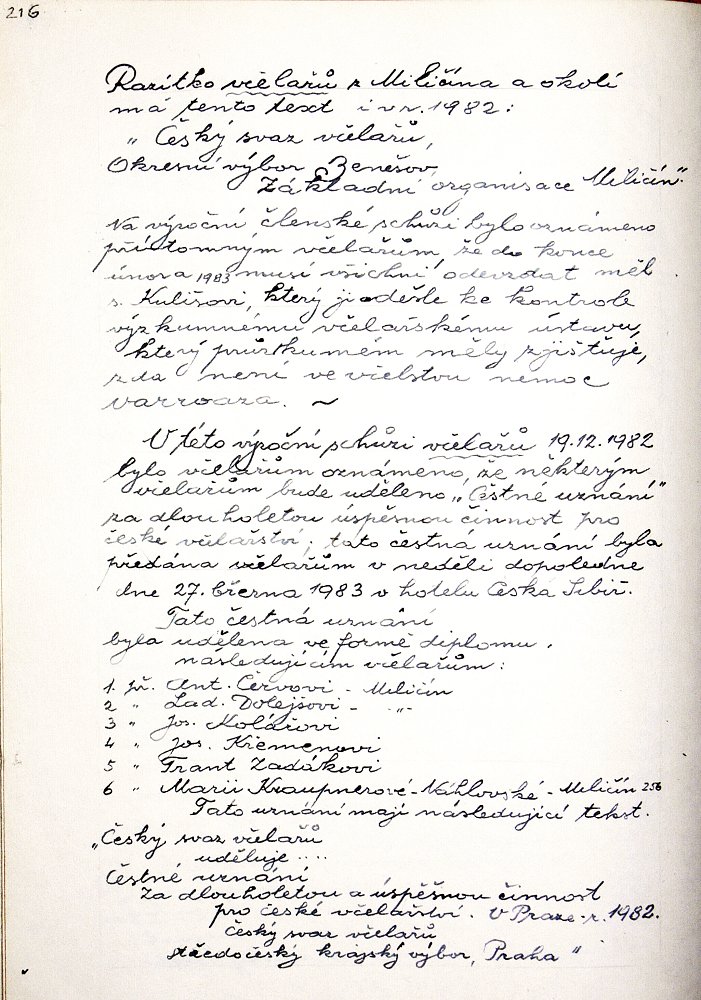 216
Razítko včelařů z Miličína a okolí
má tento text i v r. 1982:
„Český svaz včelařů,
Okresní výbor Benešov,
Základní organisace Miličín".
Na výroční členské schůzi bylo oznámeno
přítomným včelařům, že do konce
února 1983 musí všichni odevzdat měl
s. Kulišovi, který ji odešle ke kontrole
výzkumnému včelařskému ústavu,
který průzkumem měly zjišťuje,
zda není ve včelstvu nemoc
varroaza. ~
V této výroční schůzi včelařů 19.12.1982
bylo včelařům oznámeno, že některým
včelařům bude uděleno „Čestné uznání"
za dlouholetou úspěšnou činnost pro
české včelařství; tato čestná uznání byla
předána včelařům v neděli dopoledne
dne 27. března 1983 v hotelu Česká Sibiř.
Tato čestná uznání
byla udělena ve formě diplomu.
následujícím včelařům:
1. př. Ant. Červovi - Miličín
2 " Lad. Dolejšovi - -"-
3 " Jos. Kolářovi
4 " Jos. Křemenovi
5 " Frant Zadákovi
6 " Marii Kraupnerové-Váhlovské - Miličín 256
Tato uznání mají následující tekst.
„Český svaz včelařů
uděluje ....
Čestné uznání
za dlouholetou a úspěšnou činnost
pro české včelařství. V Praze - r. 1982.
Český svaz včelařů
středočeský krajský výbor, Praha "